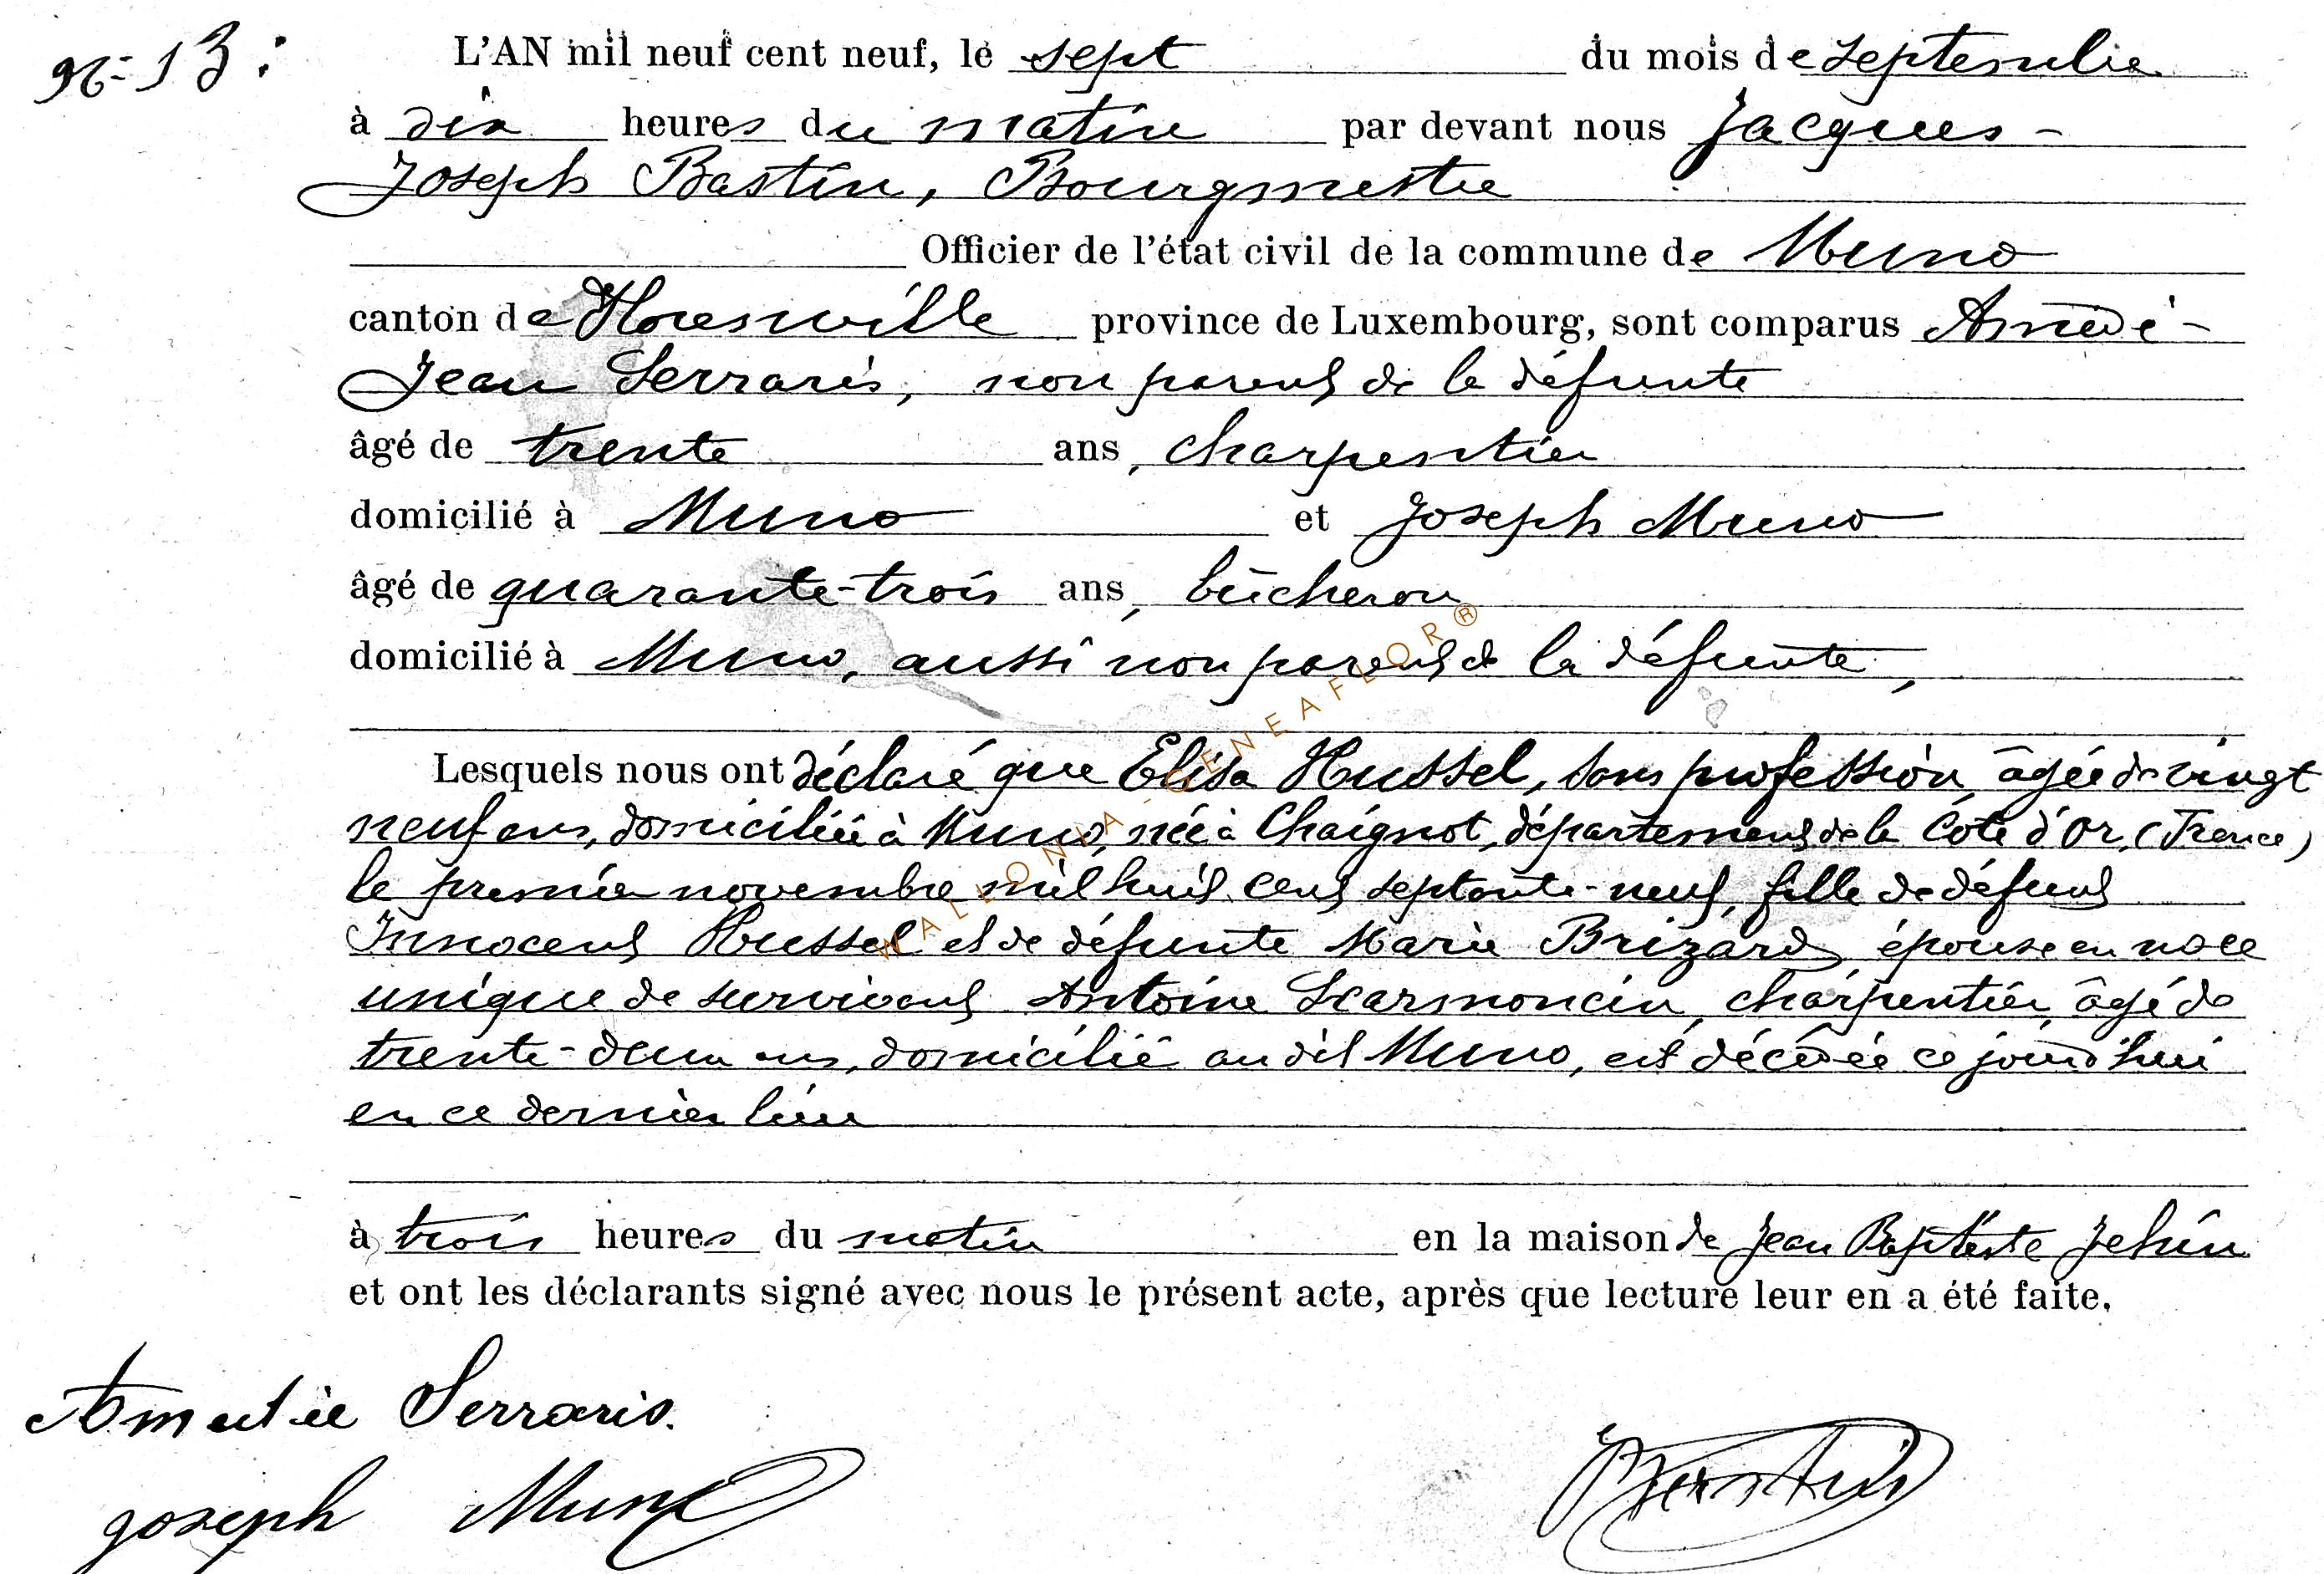 N° 13 :
L'AN mil neuf cent neuf, le sept du mois de septembre
à dix heures du matin par devant nous Jacques-
Joseph Bastin, Bourgmestre
Officier de l'état civil de la commune de Muno
canton de Florenville province de Luxembourg, sont comparus Amédé-
Jean Serraris, non parent de la défunte
âgé de trente ans, charpentier
domicilié à Muno et Joseph Muno
âgé de quarante-trois ans, bûcheron
domicilié à Muno, aussi non parent de la défunte,
Lesquels nous ont déclaré que Elisa Hussel, sans profession, âgée de vingt
neuf ans, domiciliée à Muno, née à Chaignot, département de la Côte d'Or, (France)
le premier novembre mil huit cent septante-neuf, fille de défunt
Innocent Hussel et de défunte Marie Brizard, épouse en noce
unique de survivant Antoine Scarmoncin, charpentier, âgé de
trente-deux ans, domicilié au dit Muno, est décédée ce jourd'hui
en ce dernier lieu
à trois heures du matin en la maison de Jean Baptiste Jehin
et ont les déclarants signé avec nous le présent acte, après que lecture leur en a été faite.
Amedée Serraris.
Joseph Muno
JBastin
WALLONIA-GENEAFLOR®